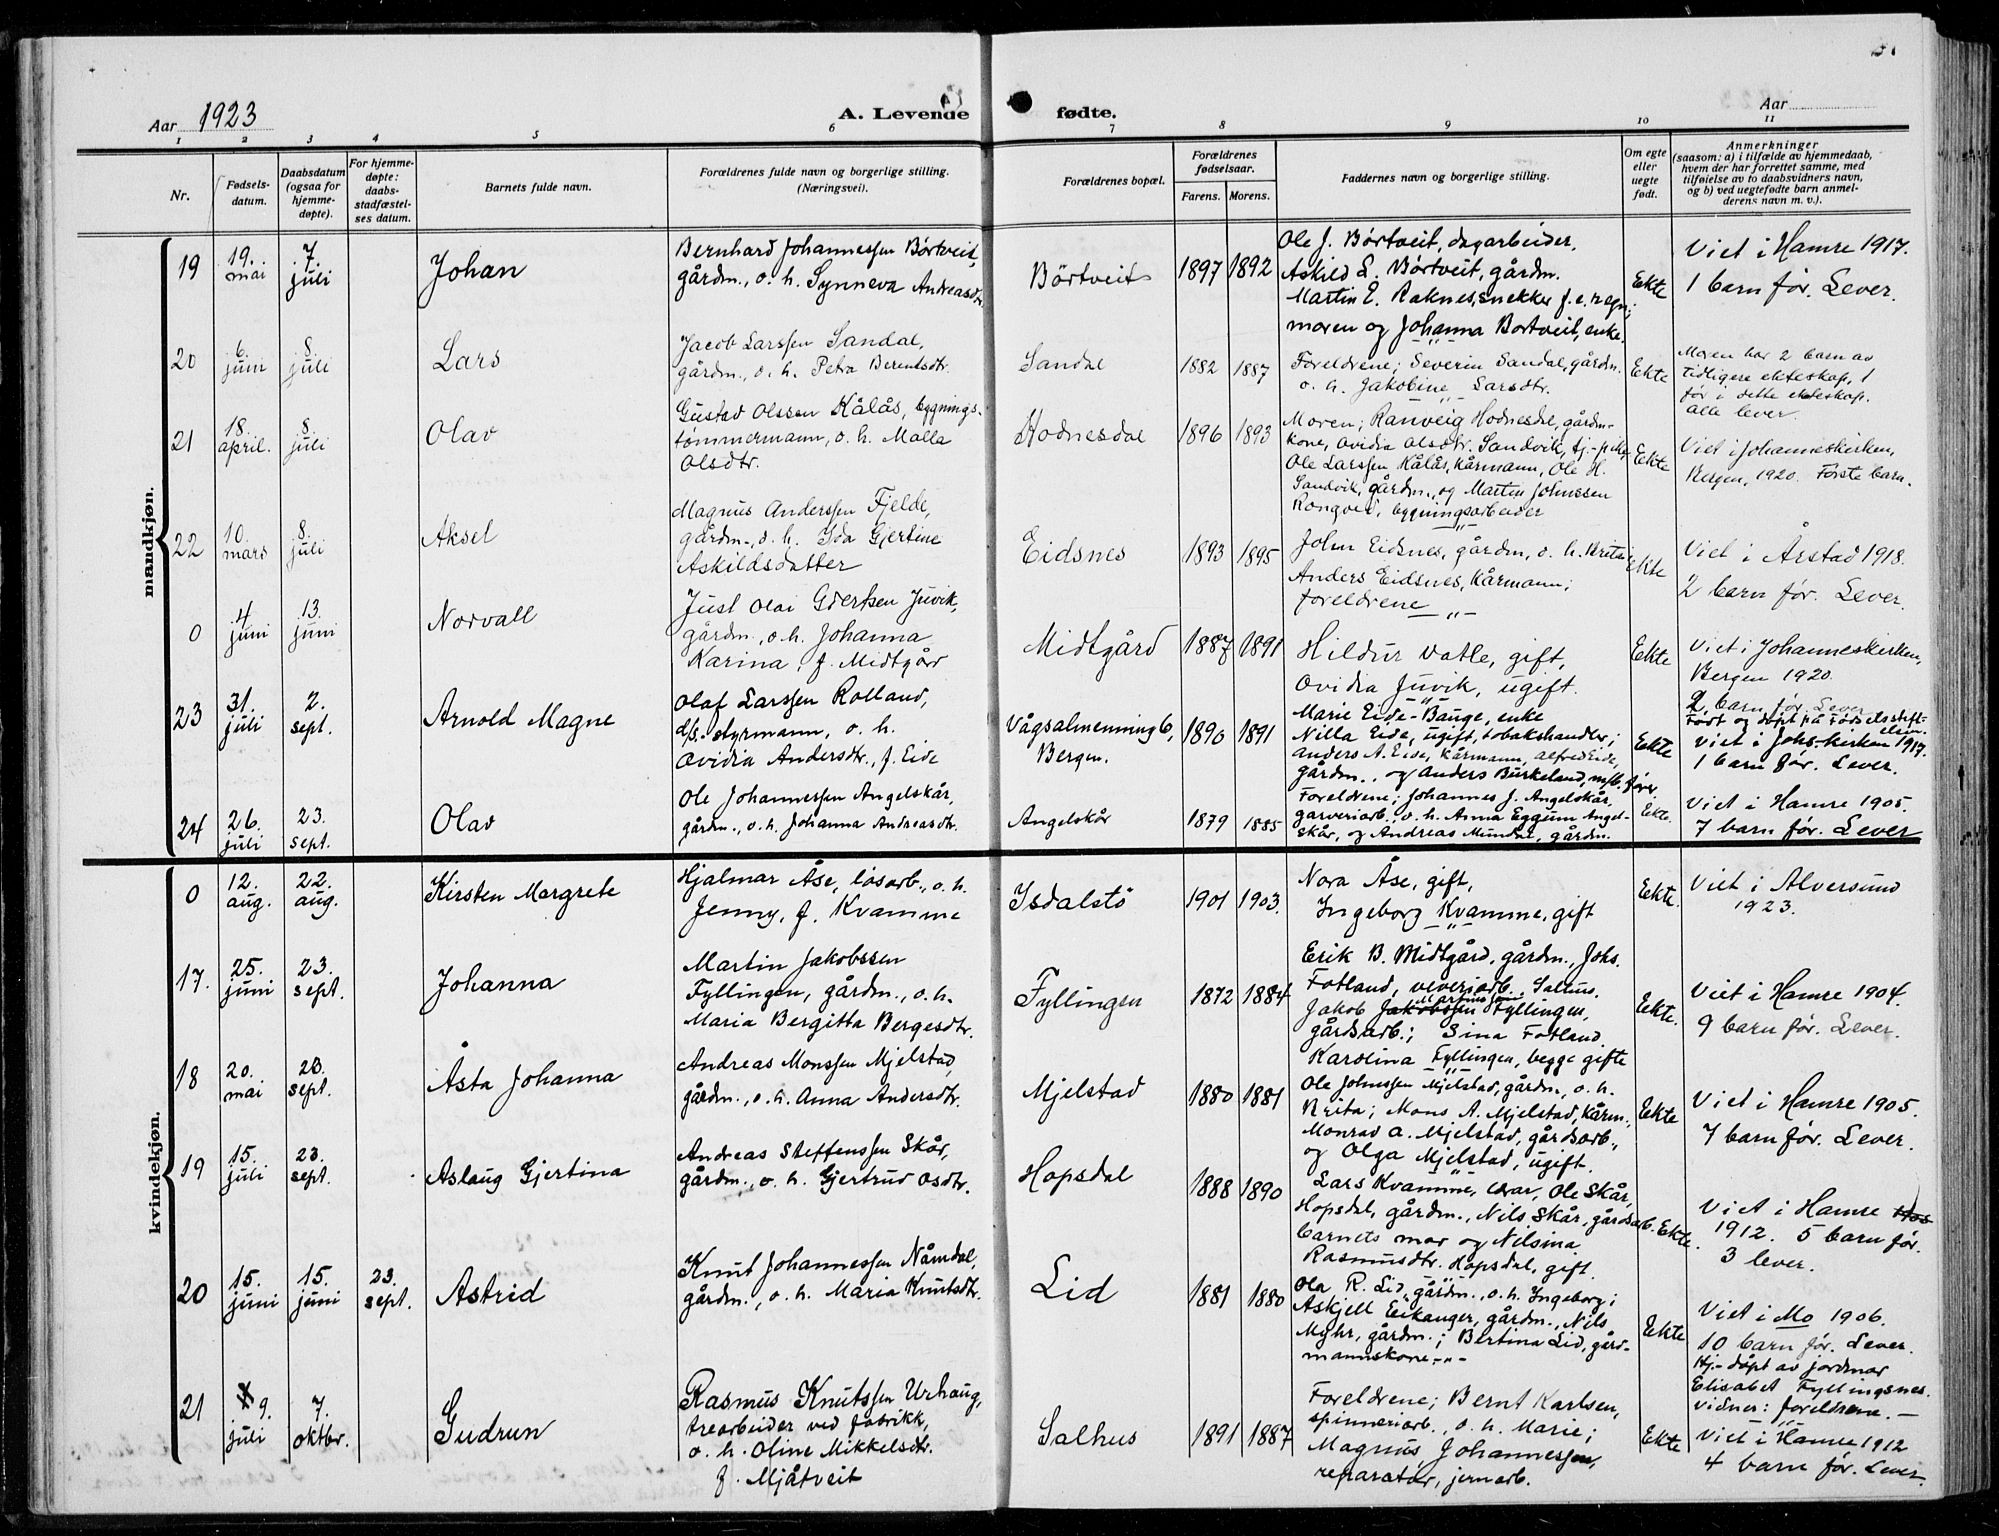 Aar 1923
A. Levende fødte.
Aar
1 2 3 4 5 6 7 8 9 10 11
Nr.
Fødsels-
datum.
Daabsdatum
(ogsaa for
hjemme-
døpte).
For hjemme-
døpte:
daabs-
stadfæstel-
ses datum.
Barnets fulde navn.
Forældrenes fulde navn og borgerlige stilling.
(Næringsvei).
Forældrenes bopæl.
Forældrenes
fødselsaar.
Farens. Morens.
Faddernes navn og borgerlige stilling.
Om egte
eller
uegte
født.
Anmerkninger
(saasom: a) i tilfælde av hjemmedaab,
hvem der har forrettet samme, med
tilføielse av to daabsvidners navn,
og b) ved uegtefødte barn anmel-
derens navn m. v.).
mandkjøn.
19
19.
mai
7.
juli
Johan
Bernhard Johannessen Börtveit,
gårdm., o. h. Synneva Andreasdtr.
Börtveit
1897 1892
Ole J. Börtveit, dagarbeider,
Askild L. Börtveit, gårdm.
Martin E. Raknes, snekker f. e. regn;
moren og Johanna Bortveit, enke.
Ekte
Viet i Hamre 1917.
1 barn før. Lever.
20
6.
juni
8.
juli
Lars
Jacob Larssen Sandal,
gårdm., o. h. Petra Berentsdtr.
Sandal
1882 1887
Foreldrene; Severin Sandal, gårdm.
o. h. Jakobine Larsdtr.
Ekte
Moren har 2 barn av
tidligere ekteskap, 1
før i dette ekteskap.
alle lever.
21
18.
april.
8.
juli
Olav
Gustav Olssen Kålås, bygnings-
tømmermann, o. h. Malla
Olsdtr.
Hodnesdal
1896 1893
Moren; Ranveig Hodnesdal, gårdm-
kone, Ovidia Olsdtr. Sandvik, tj.-pike,
Ole Larssen Kålås, kårmann, Ole H.
Sandvik, gårdm., og Martin Johnssen
Rongved, bygningsarbeider
Ekte
Viet i Johanneskirken,
Bergen, 1920. Første barn.
22
10.
mars
8.
juli
Aksel
Magnus Anderssen Fjelde,
gårdm., o. h. Ida Gjertine
Askildsdatter
Eidsnes
1893 1895
John Eidsnes, gårdm., o. h. Brita;
Anders Eidsnes, kårmann;
foreldrene
Ekte
Viet i Årstad 1918.
2 barn før. Lever.
0
4
juni
13.
juni
Norvall
Just Olai Gjertsen Juvik,
gårdm., o. h. Johanna
Karina, f. Midtgård
Midtgård
1887 1891
Hildur Vatle, gift,
Ovidia Juvik, ugift.
Ekte
Viet i Johanneskirken,
Bergen 1920.
2 barn før. Lever
23
31.
juli
2.
sept.
Arnold Magne
Olaf Larssen Rolland,
d/s. styrmann, o. h.
Ovidia Andersdtr., f. Eide
Vågsalmenning 6,
Bergen.
1890 1891
Marie Eide-Bauge, enke
Nilla Eide, ugift, tobakshandler;
Anders A. Eide, kårmann, Alfred Eide,
gårdm., og Anders Burkeland, m/b. fører
Ekte
Født og døpt på Fødselsstift-
elsen.
Viet i Johs-kirken 1917.
1 barn før. Lever.
24
26.
juli
23.
sept.
Olav
Ole Johannessen Angelskår,
gårdm., o. h. Johanna Andreasdtr.
Angelskår
1879 1885
Foreldrene; Johannes J. Angelskår,
garveriarb., o. h. Anna Eggum Angel-
skår, og Andreas Mundal, gårdm.
Ekte.
Viet i Hamre 1905.
7 barn før. Lever
kvindekjøn.
0
12.
aug.
22.
aug.
Kirsten Margrete
Hjalmar Åse, løsarb., o. h.
Jenny, f. Kvamme
Isdalstö
1901 1903.
Nora Åse, gift,
Ingeborg Kvamme, gift
Ekte.
Viet i Alversund
1923.
17.
25.
juni
23.
sept.
Johanna
Martin Jakobssen
Fyllingen, gårdm., o. h.
Maria Bergitta Bergesdtr.
Fyllingen
1872 1884
Erik B. Midtgård, gårdm., Johs.
Fotland, veveriarb. Salhus.
Jakob Jakobssen Martinssen Fyllingen,
gårdsarb.; Sina Fotland.
Karolina Fyllingen, begge gifte
Ekte.
Viet i Hamre 1904.
9 barn før. Lever.
18
20.
mai
23.
sept.
Åsta Johanna
Andreas Monssen Mjelstad,
gårdm., o. h. Anna Andersdtr.
Mjelstad
1880 1881
Ole Johnssen Mjelstad, gårdm., o. h.
Brita; Mons A. Mjelstad, kårm.,
Monrad A. Mjelstad, gårdsarb.,
og Olga Mjelstad, ugift.
Ekte
Viet i Hamre 1905.
7 barn før. Lever.
19
15.
juli
23.
sept.
Aslaug Gjertina
Andreas Steffenssen Skår,
gårdm., o. h. Gjertrud Osdtr.
Hopsdal
1888 1890
Lars Kvamme, Ole Skår,
Hopsdal, gårdm., Nils Skår, gårdsarb.
barnets mor og Nilsina
Rasmusdtr. Hopsdal, gift.
Ekte.
Viet i Hamre
1912. 5 barn før.
3 lever.
20
15.
juni
15.
juni
23.
sept.
Astrid
Knut Johannessen Nåmdal,
gårdm., o. h. Maria Knutsdtr.
Lid
1881 1880
Ola R. Lid, gårdm., o. h. Ingeborg;
Askjell Eikanger, gårdm., Nils
Myhr, gårdm.; Bertina Lid, gård-
mannskone
Ekte
Viet i Mo 1906.
10 barn før. Lever.
Hj.-døpt av jordmor
Elisabet Fyllingsnes.
vidner: foreldrene.
21
9.
juli
7.
oktbr.
Gudrun
Rasmus Knutssen Urhaug,
trearbeider ved fabrikk,
o. h. Oline Mikkelsdtr.
f. Mjåtveit
Salhus
1891 1887
Foreldrene; Bernt Karlsen,
spinneriarb., o. h. Marie;
Magnus Johannessen,
reparatør, jernarb.
Ekte
Viet i Hamre 1912
4 barn før. Lever.